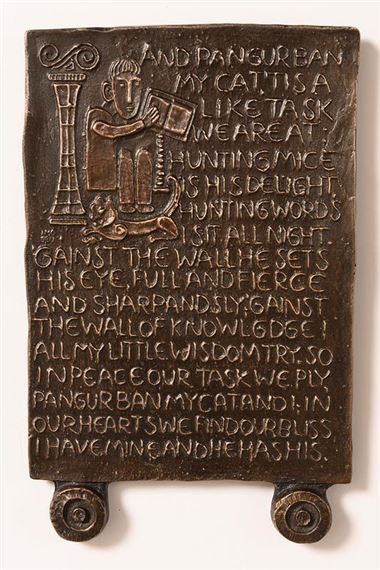 I AND PANGUR BAN
MY CAT, 'TIS A
LIKE TASK
WE ARE AT;
HUNTING MICE
IS HIS DELIGHT,
HUNTING WORDS
I SIT ALL NIGHT.
'GAINST THE WALL HE SETS
HIS EYE, FULL AND FIERCE
AND SHARP AND SLY; 'GAINST
THE WALL OF KNOWLEDGE I
ALL MY LITTLE WISDOM TRY. SO
IN PEACE OUR TASK WE PLY
PANGUR BAN MY CAT AND I; IN
OUR HEARTS WE FIND OUR BLISS
I HAVE MINE AND HE HAS HIS.